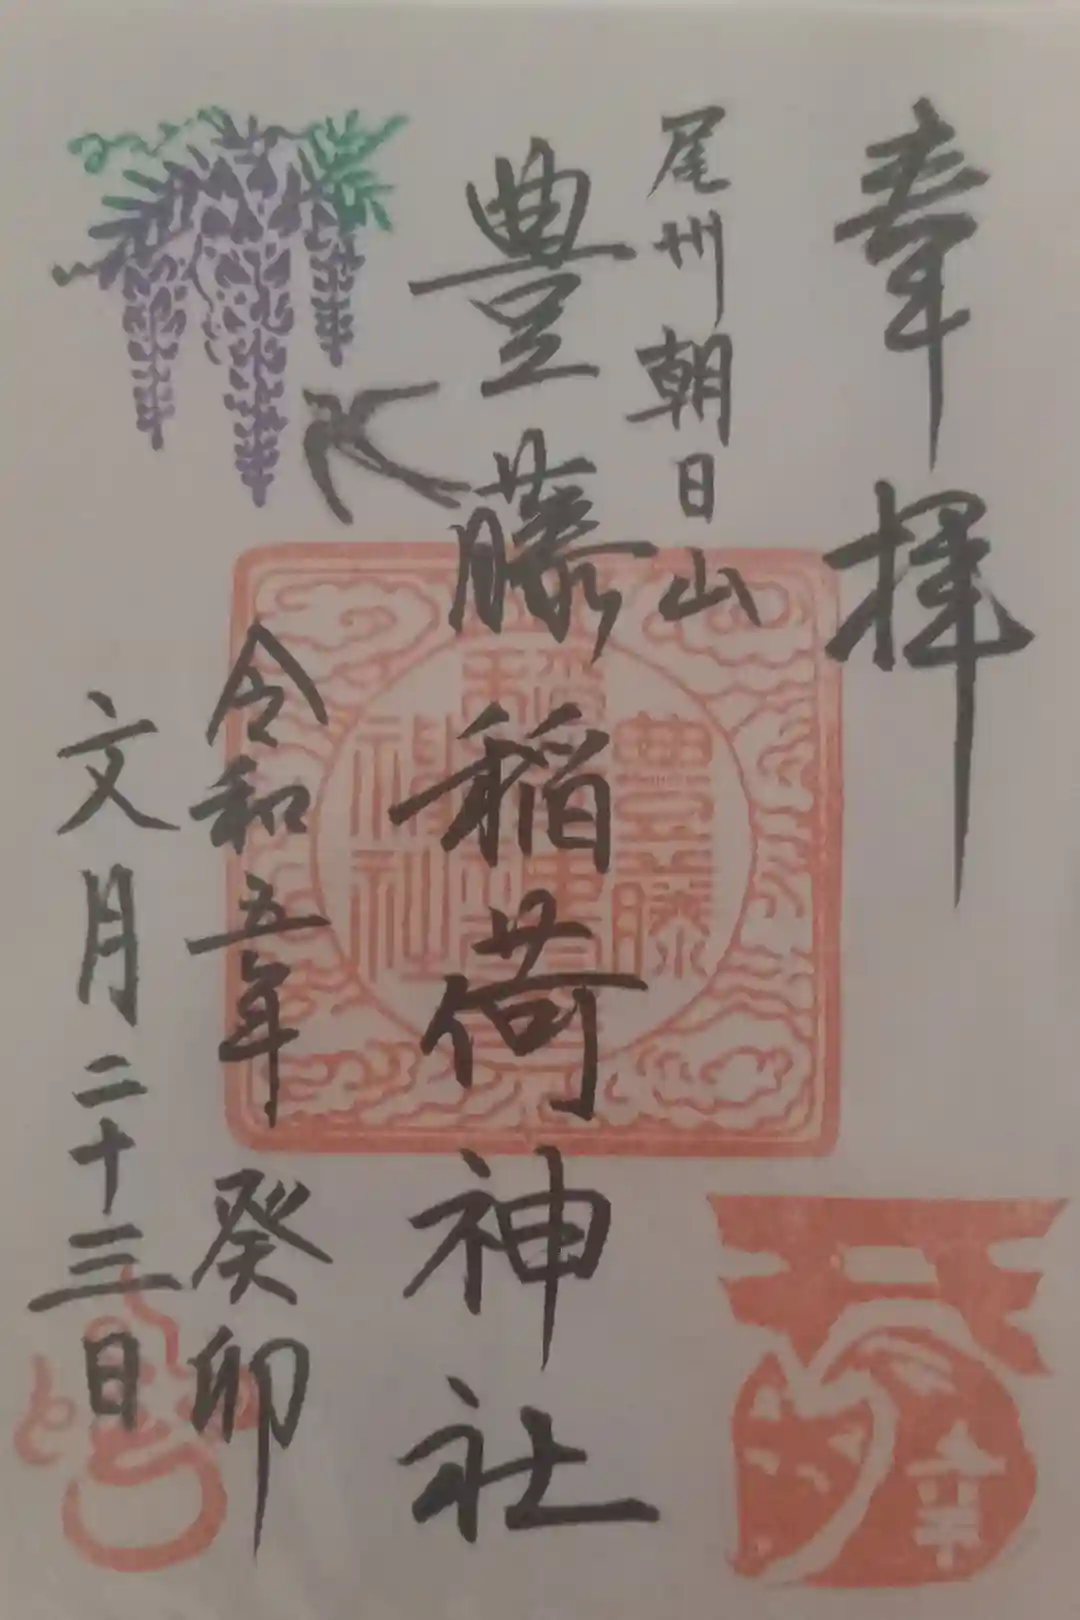 奉拝
尾州朝日山
豊藤稲荷神社
令和五年 癸卯
文月二十三日
豊藤
神社